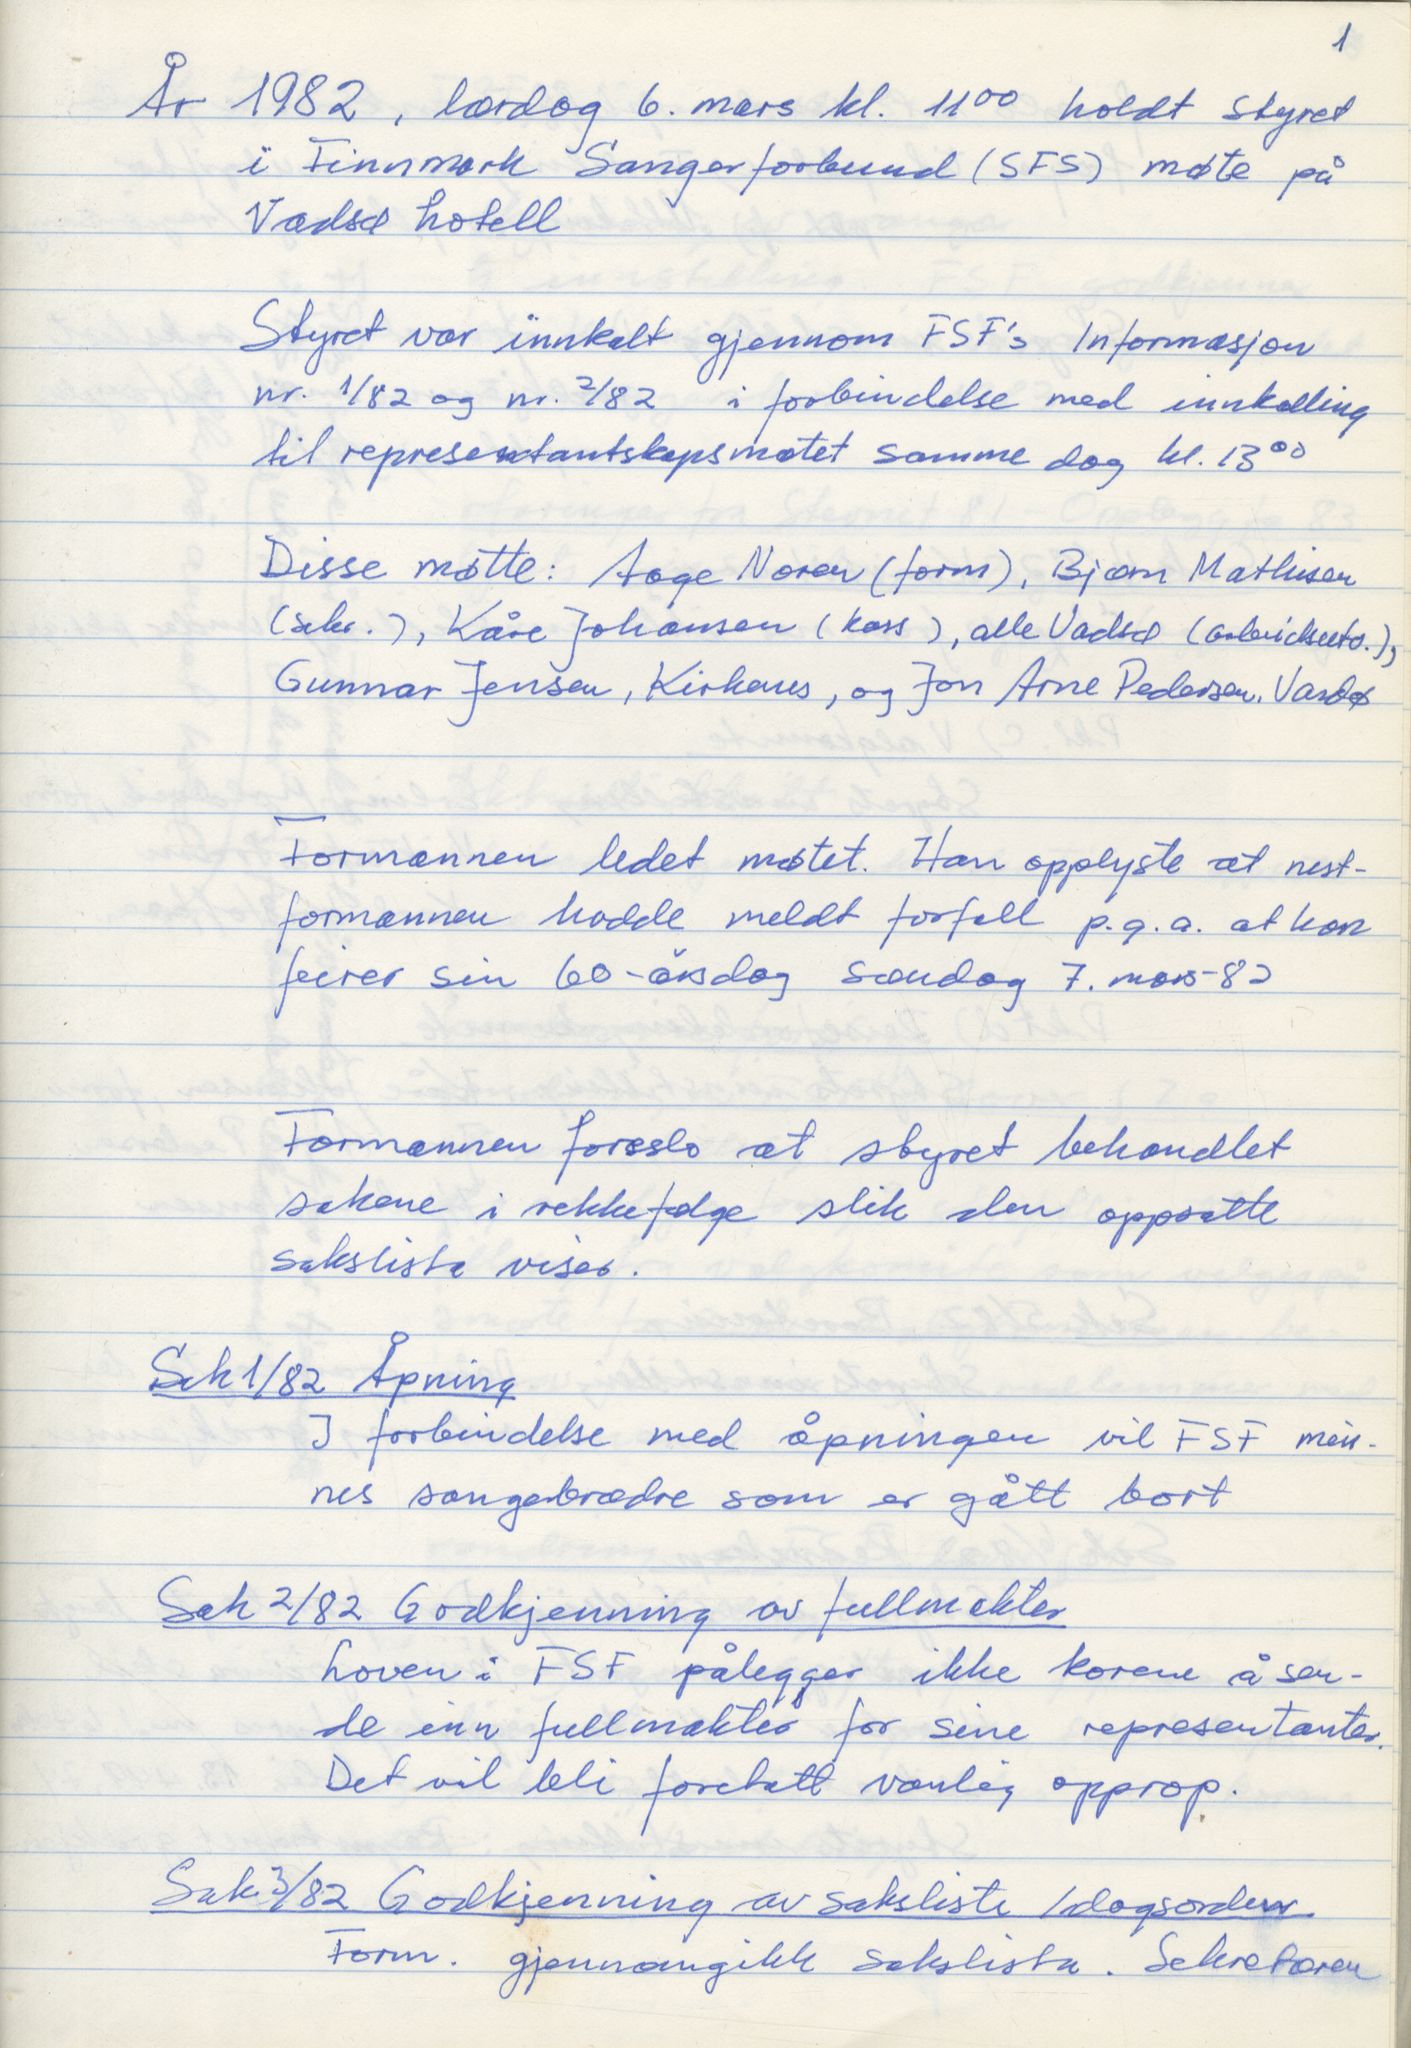 1
År 1982, lørdag 6. mars kl. 11⁰⁰ holdt styret
i Finnmark Sangerforbund (SFS) møte på
Vadsø hotell
Styret var innkalt gjennom FSF's Informasjon
nr. 1/82 og nr. 2/82 i forbindelse med innkalling
til representantskapsmøtet samme dag kl. 13⁰⁰
Disse møtte: Aage Noren (form), Bjørn Mathisen
(sekr.), Kåre Johansen (kass), alle Vadsø (arbeidsutv.),
Gunnar Jensen, Kirkenes, og Jon Arne Pedersen, Vardø
Formannen ledet møtet. Han opplyste at nest-
formannen hadde meldt forfall p.g.a. at han
feirer sin 60-årsdag søndag 7. mars-82
Formannen foreslo at styret behandlet
sakene i rekkefølge slik den oppsatte
sakslista viser.
Sak 1/82 Åpning
I forbindelse med åpningen vil FSF min-
nes sangerbrødre som er gått bort
Sak 2/82 Godkjenning av fullmakter
Loven i FSF pålegger ikke korene å sen-
de inn fullmakter for sine representanter.
Det vil bli foretatt vanlig opprop.
Sak 3/82 Godkjenning av saksliste /dagsorden.
Form. gjennomgikk sakslista. Sekretæren